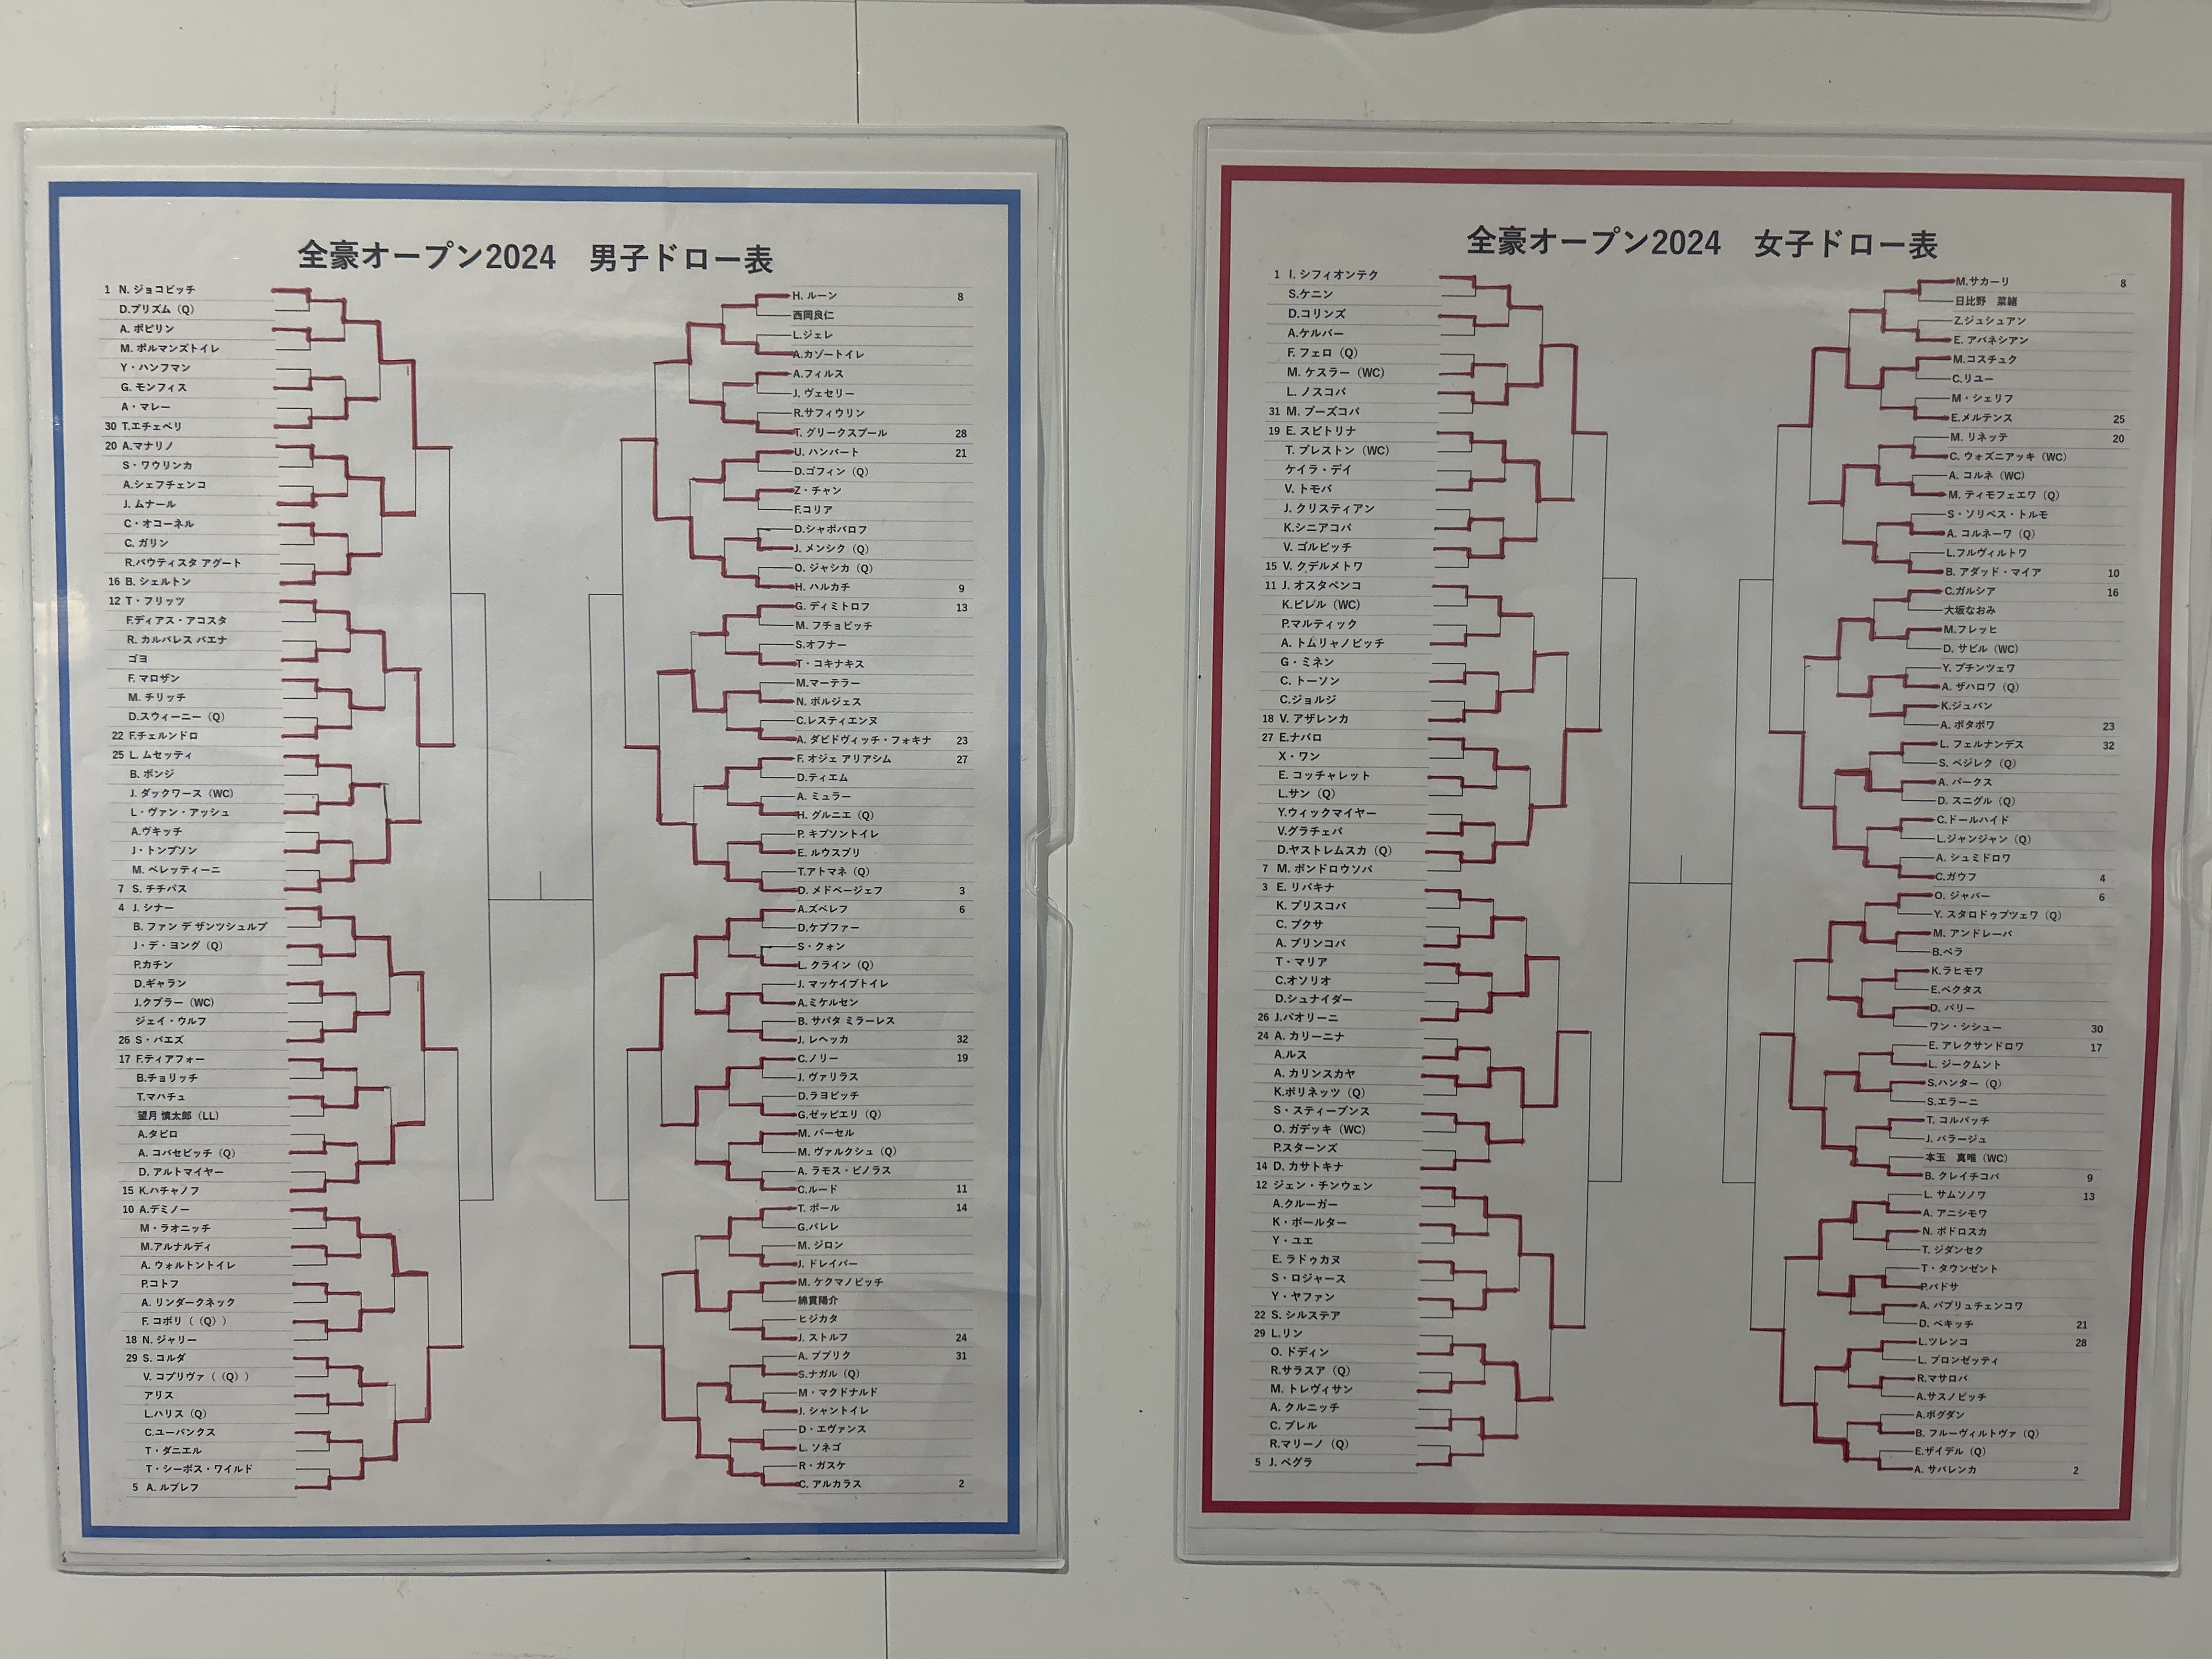 全豪オープン2024 男子ドロー表
1 N. ジョコビッチ
D.プリズム（Q）
A. ポピリン
M. ポルマンズトイレ
Y・ハンフマン
G. モンフィス
A・マレー
30 T.エチェベリ
20 A.マナリノ
S・ワウリンカ
A.シェフチェンコ
J. ムナール
C・オコーネル
C. ガリン
R.バウティスタ アグート
16 B. シェルトン
12 T・フリッツ
F.ディアス・アコスタ
R. カルバレス バエナ
ゴヨ
F. マロザン
M. チリッチ
D.スウィーニー（Q）
22 F.チェルンドロ
25 L. ムセッティ
B. ボンジ
J. ダックワース（WC）
L・ヴァン・アッシュ
A.ヴキッチ
J・トンプソン
M. ベレッティーニ
7 S. チチパス
4 J. シナー
B. ファン デ ザンツシュルプ
J・デ・ヨング（Q）
P.カチン
D.ギャラン
J.クブラー（WC）
ジェイ・ウルフ
26 S・バエズ
17 F.ティアフォー
B.チョリッチ
T.マハチュ
望月 慎太郎（LL）
A.タビロ
A. コバセビッチ（Q）
D. アルトマイヤー
15 K.ハチャノフ
10 A.デミノー
M・ラオニッチ
M.アルナルディ
A. ウォルトントイレ
P.コトフ
A. リンダークネック
F. コボリ（（Q））
18 N. ジャリー
29 S. コルダ
V. コプリヴァ（（Q））
アリス
L.ハリス（Q）
C.ユーバンクス
T・ダニエル
T・シーボス・ワイルド
5 A. ルブレフ
H. ルーン 8
西岡良仁
L.ジェレ
A.カゾートイレ
A.フィルス
J. ヴェセリー
R.サフィウリン
T. グリークスプール 28
U. ハンバート 21
D.ゴフィン（Q）
Z・チャン
F.コリア
D.シャポバロフ
J. メンシク（Q）
O. ジャシカ（Q）
H. ハルカチ 9
G. ディミトロフ 13
M. フチョビッチ
S.オフナー
T・コキナキス
M.マーテラー
N. ボルジェス
C.レスティエンヌ
A. ダビドヴィッチ・フォキナ 23
F. オジェ アリアシム 27
D.ティエム
A. ミュラー
H. グルニエ（Q）
P. キプソントイレ
E. ルウスブリ
T.アトマネ（Q）
D. メドベージェフ 3
A.ズベレフ 6
D.ケプファー
S・クォン
L. クライン（Q）
J. マッケイブトイレ
A.ミケルセン
B. サパタ ミラーレス
J. レヘッカ 32
C.ノリー 19
J. ヴァリラス
D.ラヨビッチ
G.ゼッピエリ（Q）
M. パーセル
M. ヴァルクシュ（Q）
A. ラモス・ビノラス
C.ルード 11
T. ポール 14
G.バレレ
M. ジロン
J. ドレイパー
M. ケクマノビッチ
綿貫陽介
ヒジカタ
J. ストルフ 24
A. ブブリク 31
S.ナガル（Q）
M・マクドナルド
J. シャントイレ
D・エヴァンス
L. ソネゴ
R・ガスケ
C. アルカラス 2
全豪オープン2024 女子ドロー表
1 I. シフィオンテク
S.ケニン
D.コリンズ
A.ケルバー
F. フェロ（Q）
M. ケスラー（WC）
L. ノスコバ
31 M. ブーズコバ
19 E. スビトリナ
T. プレストン（WC）
ケイラ・デイ
V. トモバ
J. クリスティアン
K.シニアコバ
V. ゴルビッチ
15 V. クデルメトワ
11 J. オスタペンコ
K.ビレル（WC）
P.マルティック
A. トムリャノビッチ
G・ミネン
C. トーソン
C.ジョルジ
18 V. アザレンカ
27 E.ナバロ
X・ワン
E. コッチャレット
L.サン（Q）
Y.ウィックマイヤー
V.グラチェバ
D.ヤストレムスカ（Q）
7 M. ボンドロウソバ
3 E. リバキナ
K. プリスコバ
C. ブクサ
A. ブリンコバ
T・マリア
C.オソリオ
D.シュナイダー
26 J.パオリーニ
24 A. カリーニナ
A.ルス
A. カリンスカヤ
K.ボリネッツ（Q）
S・スティーブンス
O. ガデッキ（WC）
P.スターンズ
14 D. カサトキナ
12 ジェン・チンウェン
A.クルーガー
K・ボールター
Y・ユエ
E. ラドゥカヌ
S・ロジャース
Y・ヤファン
22 S. シルステア
29 L.リン
O. ドディン
R.サラスア（Q）
M. トレヴィサン
A. クルニッチ
C. ブレル
R.マリーノ（Q）
5 J. ペグラ
M.サカーリ 8
日比野 菜緒
Z.ジュシュアン
E. アバネシアン
M.コスチュク
C.リユー
M・シェリフ
E.メルテンス 25
M. リネッテ 20
C. ウォズニアッキ（WC）
A. コルネ（WC）
M. ティモフェエワ（Q）
S・ソリベス・トルモ
A. コルネーワ（Q）
L.フルヴィルトワ
B. アダッド・マイア 10
C.ガルシア 16
大坂なおみ
M.フレッヒ
D. サビル（WC）
Y. プチンツェワ
A. ザハロワ（Q）
K.ジュバン
A. ポタポワ 23
L. フェルナンデス 32
S. ベジレク（Q）
A. パークス
D. スニグル（Q）
C.ドールハイド
L.ジャンジャン（Q）
A. シュミドロワ
C.ガウフ 4
O. ジャバー 6
Y. スタロドゥブツェワ（Q）
M. アンドレーバ
B.ペラ
K.ラヒモワ
E.ベクタス
D. パリー
ワン・シシュー 30
E. アレクサンドロワ 17
L. ジークムント
S.ハンター（Q）
S.エラーニ
T. コルパッチ
J. パラージュ
本玉 真唯（WC）
B. クレイチコバ 9
L. サムソノワ 13
A. アニシモワ
N. ポドロスカ
T. ジダンセク
T・タウンゼント
P.バドサ
A. パブリュチェンコワ
D. ベキッチ 21
L.ツレンコ 28
L. ブロンゼッティ
R.マサロバ
A.サスノビッチ
A.ボグダン
B. フルーヴィルトヴァ（Q）
E.ザイデル（Q）
A. サバレンカ 2